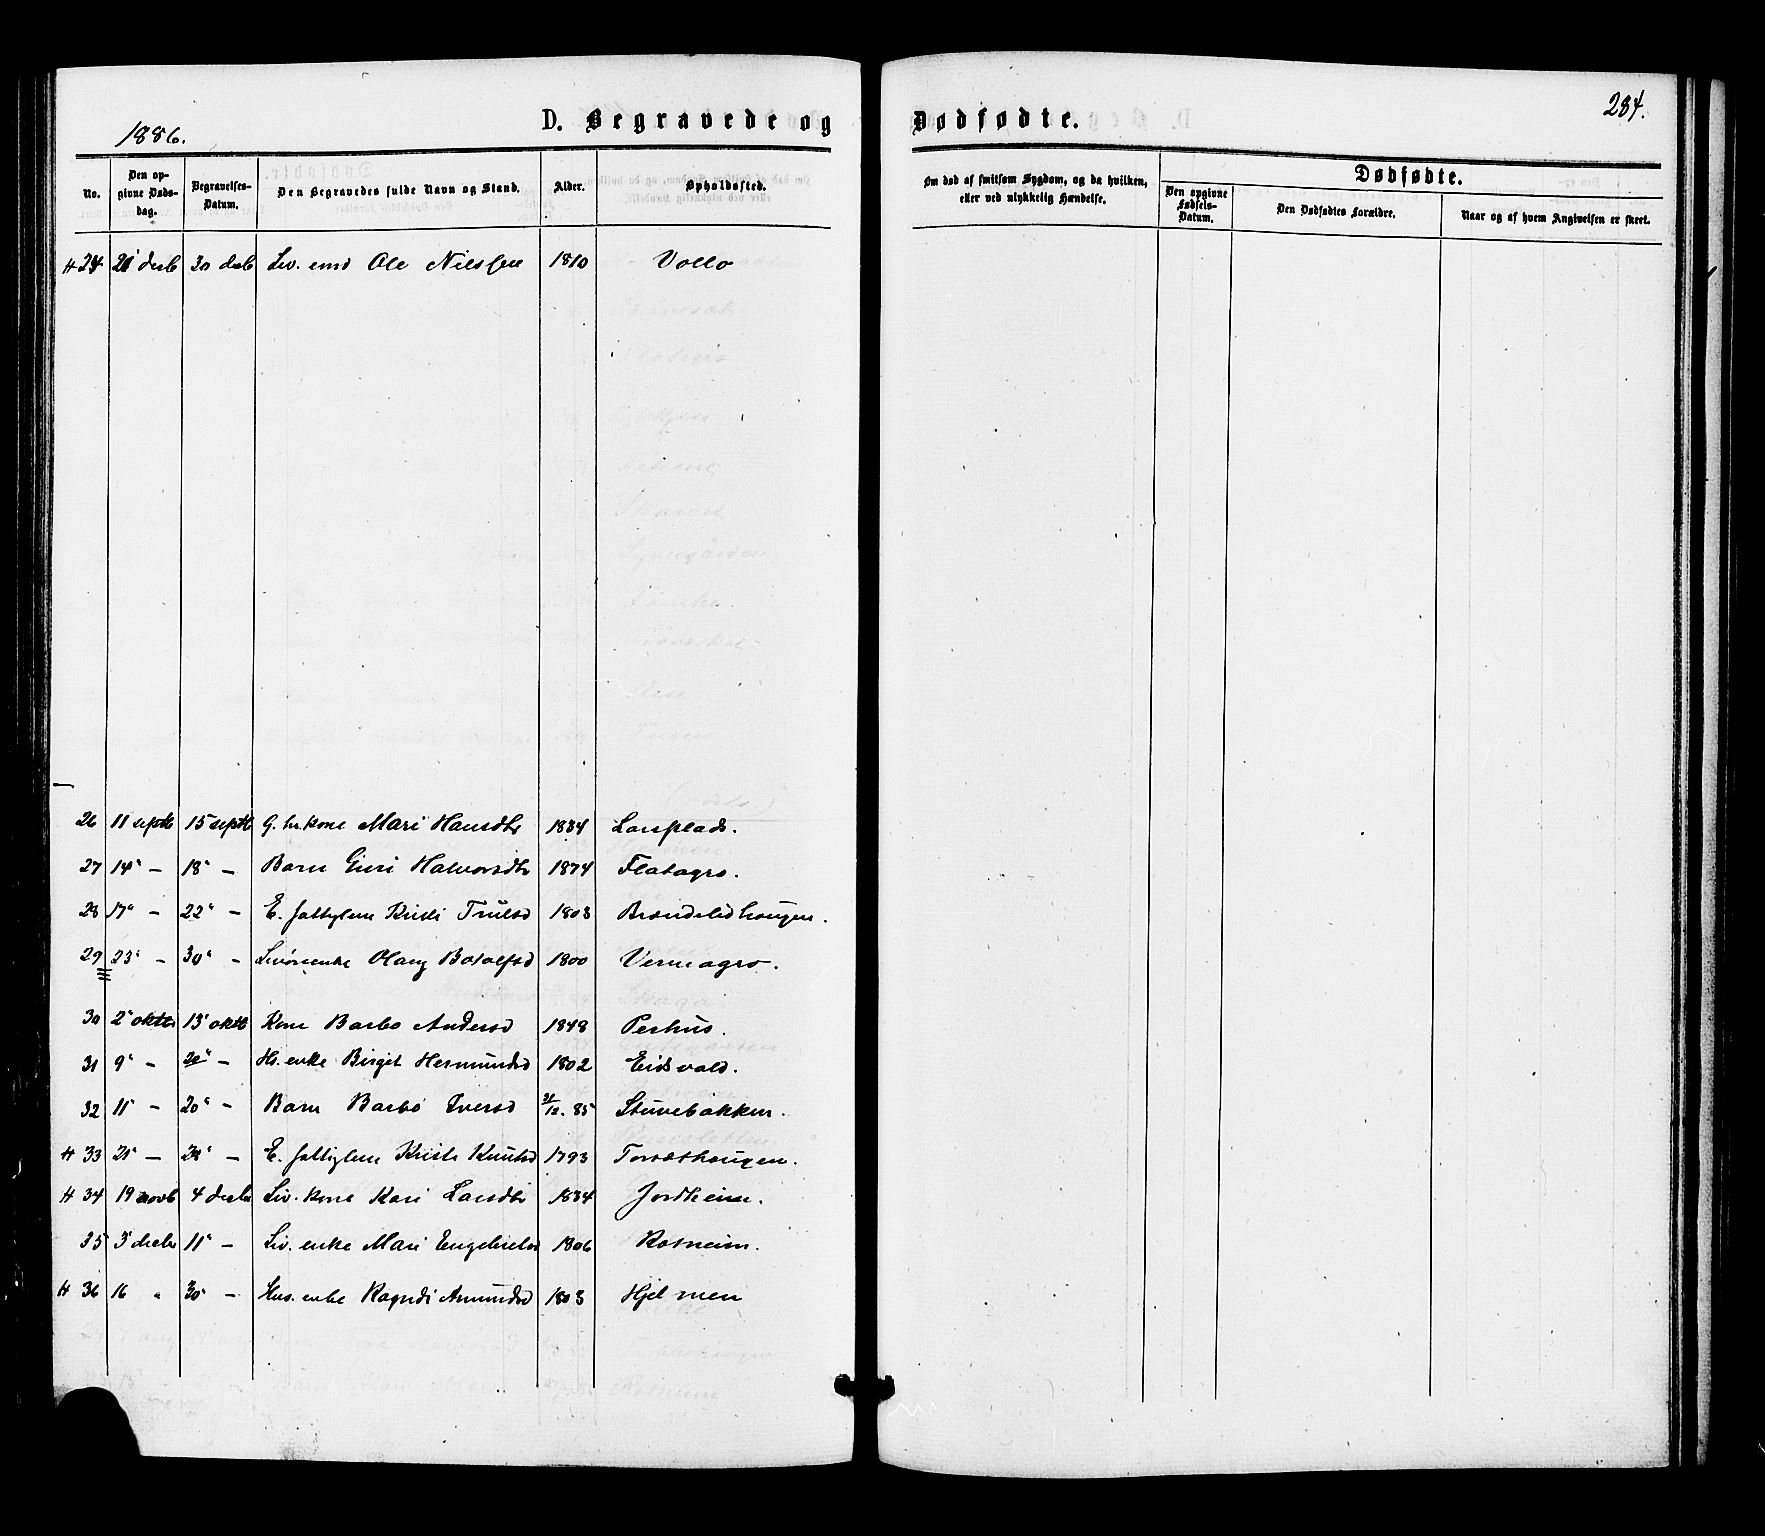 1886.
D. Begravede og Dødfødte.
284.
No. | Den opgivne Døds-dag. | Begravelses-Datum. | Den Begravedes fulde Navn og Stand. | Alder. | Opholdssted. | Om død af smitsom Sygdom, og da hvilken, eller ved ulykkelig Hændelse. | Dødfødte. | Den opgivne Fødsels-Datum. | Den Dødfødtes Forældre. | Naar og af hvem Angivelsen er skeet.
H 24 decb 30 decb Lev. emd Ole Nilssen 1810 Vollo
26 11 septb 15 septb G. br. kone Mari Hansdtr 1834 Larsplads.
27 14" — 18" — Barn Guri Halvorsdtr 1874 Flatagro.
28 17" — 22" — E. fattiglem Kristi Trulsd 1803 Brændelidhaugen.
29 23" — 30" — Olaug Botolfsd 1800 Vermagro.
30 2" oktbr 13" oktb Kone Barbo Andersd 1848 Perhus.
31 9" — 20" — Hs. enke Birget Hermundsd 1802 Eidsvold.
32 11" — 20" — Barn Barbo Iversd 21/12. 85 Stuvebakken.
H 33 21" — — E. fattiglem Kristi Knutsd 1793 Torsethaugen.
H 34 19 novb 4 decbr Lev. kone Kari Larsdtr 1834 Jordheim.
35 3" decbr 11" — Lev. enke Mari Engebretsd 1806 Rotneim.
H 36 16 " 30" — Hus. enke Ragndi Amundsd 1803 Hjelmen